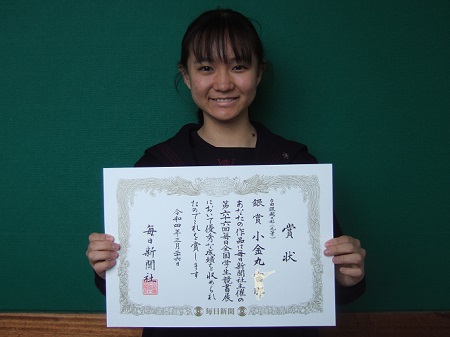 賞状
銀賞 小金丸
あなたの作品は毎日新聞社主催の
第六十六回毎日全国学生競書展
において優秀な成績を収められ
たのでこれを賞します
令和四年三月二十六日
毎日新聞社
毎日新聞